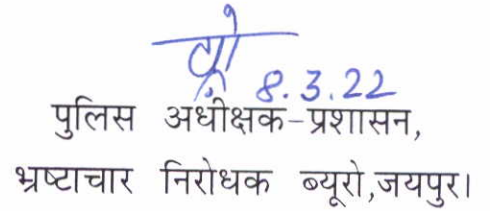 8.3.22
पुलिस अधीक्षक-प्रशासन,
भ्रष्टाचार निरोधक ब्यूरो,जयपुर।